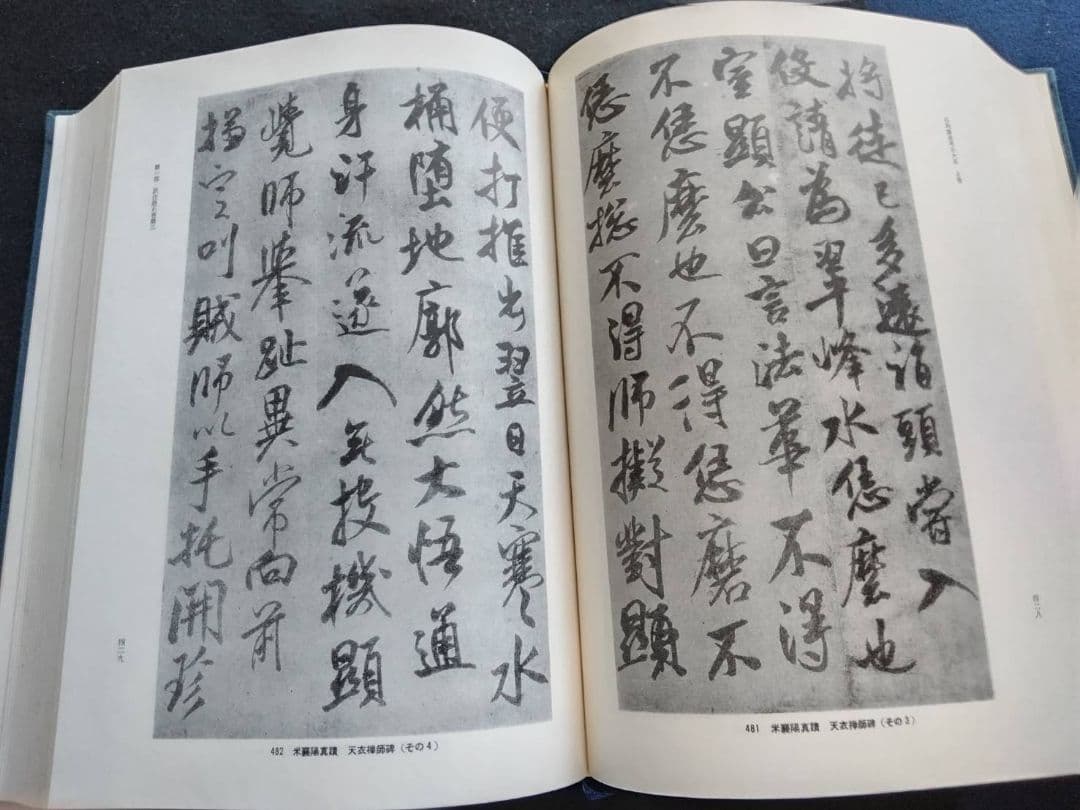 將徒已多遠詣頭嘗入
役請為翠峰水恁麼也
室顯公曰言法華不得
不恁麼也不得恁磨不
恁麼揔不得師擬對顯
481 米襄陽真蹟 天衣禅師碑(その3)
四二八
便打推出翌日天寒水
桶墮地廓然大悟通
身汗流遂入投機顯
覺師舉趾異常向前
搊定叫賊師以手托開珍
482 米襄陽真蹟 天衣禅師碑(その4)
四二九